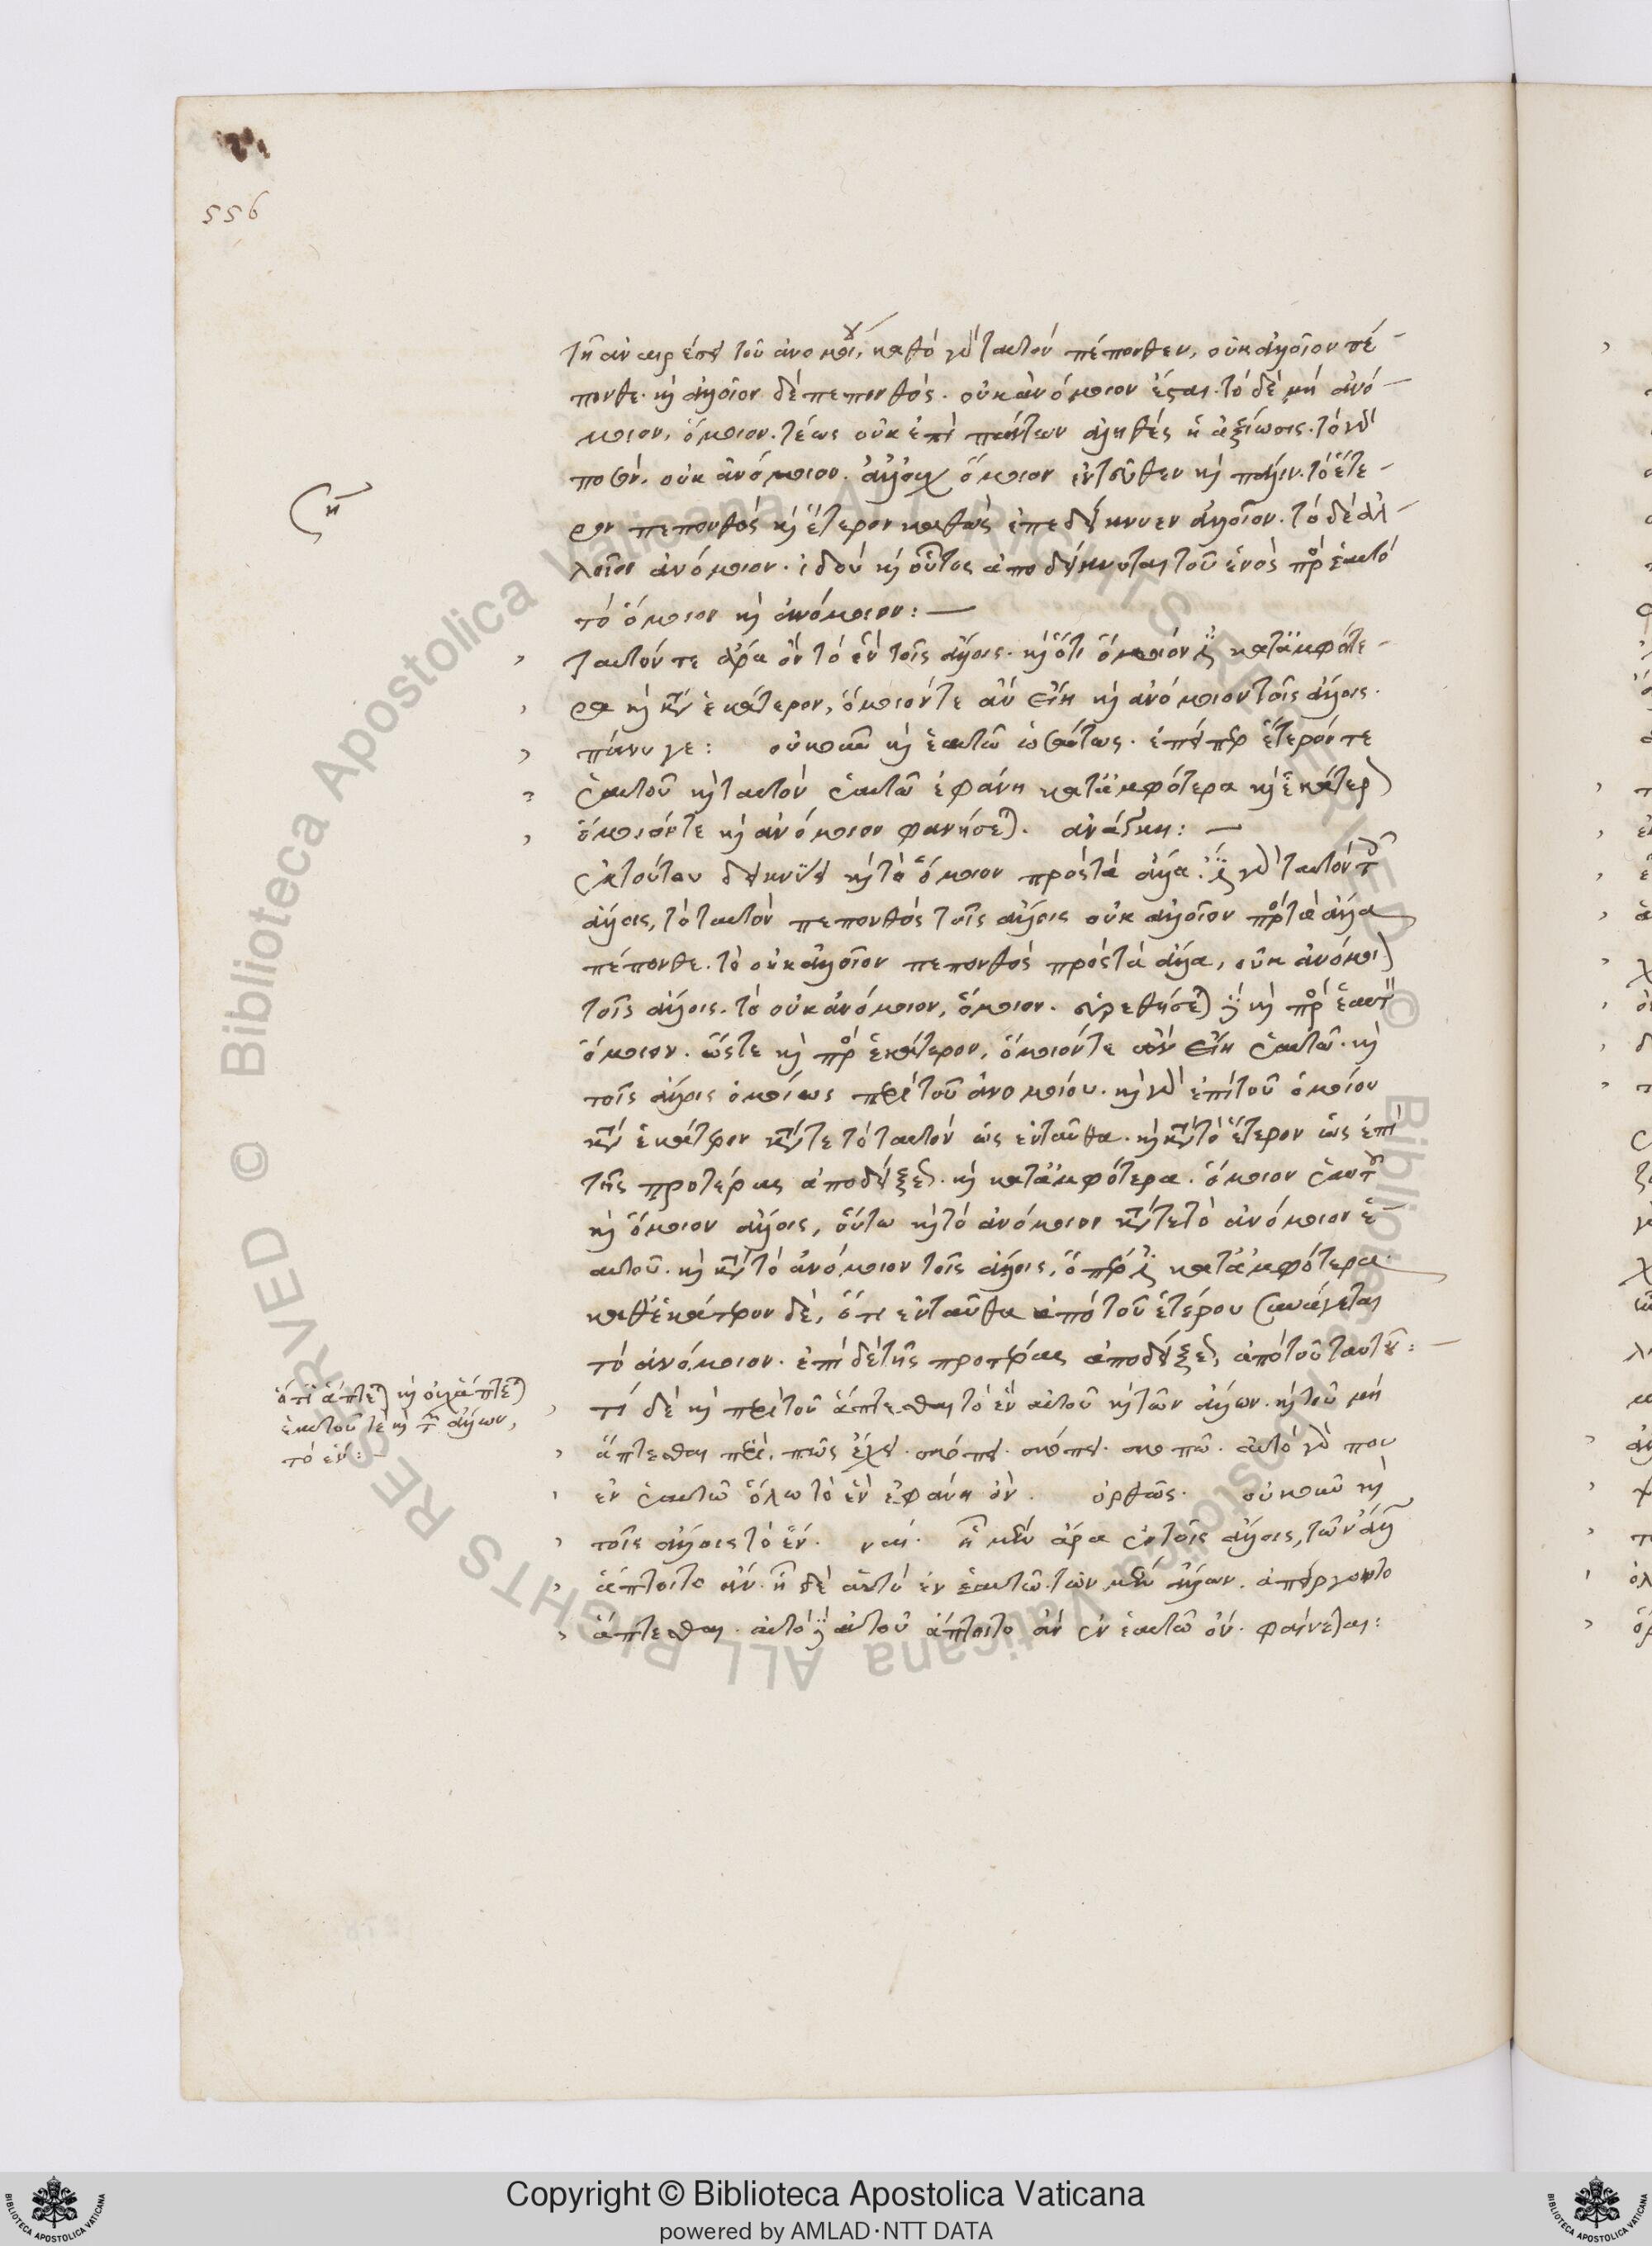 556
τῇ ἀναιρέσει τοῦ ἀνομοίου, καθὸ γὰρ ταυτὸν πέπονθεν, οὐκ ἀλλοῖον πέ-
πονθε. καὶ ἀλλοῖον δὲ πεπονθὸς. οὐκ ἀνόμοιον ἔσται. τὸ δὲ μὴ ἀνό-
μοιον, ὅμοιον. τέως οὐκ ἐπὶ πάντων ἀληθὲς ἡ ἀξίωσις. τὸ γὰρ
ποσὸν, οὐκ ἀνόμοιον. ἀλλ' οὐχ ὅμοιον ἐντεῦθεν καὶ πάλιν. τὸ ἕτε-
ρον πεπονθὸς καὶ ἕτερον καθὼς ἐπεδείκνυεν ἀλλοῖον. τὸ δὲ ἀλ-
λοῖον ἀνόμοιον. ἰδοὺ καὶ οὗτος ἀποδείκνυται τοῦ ἑνὸς πρὸς ἑαυτὸ
τὸ ὅμοιον καὶ ἀνόμοιον:—
ταυτόν τε ἄρα ὂν τὸ ἓν τοῖς ἄλλοις. καὶ ὅτι ἕτερόν ἐστι κατ' ἀμφότε-
ρα καὶ καθ' ἑκάτερον, ὅμοιόν τε ἂν εἴη καὶ ἀνόμοιον τοῖς ἄλλοις.
πάνυ γε: οὐκοῦν καὶ ἑαυτῷ ὡσαύτως. ἐπείπερ ἕτερόν τε
ἑαυτοῦ καὶ ταυτὸν ἑαυτῷ ἐφάνη κατ' ἀμφότερα καὶ ἑκάτερον
ὅμοιόν τε καὶ ἀνόμοιον φανήσεται. ἀνάγκη:—
ἐκ τούτου δείκνυσι καὶ τὸ ὅμοιον πρὸς τὰ ἄλλα. εἰ γὰρ ταυτὸν τοῖς
ἄλλοις, τὸ ταυτὸν πεπονθὸς τοῖς ἄλλοις οὐκ ἀλλοῖον πρὸς τὰ ἄλλα
πέπονθε. τὸ οὐκ ἀλλοῖον πεπονθὸς πρὸς τὰ ἄλλα, οὐκ ἀνόμοιον
τοῖς ἄλλοις. τὸ οὐκ ἀνόμοιον, ὅμοιον. εὑρεθήσεται δὲ καὶ πρὸς ἑαυτὸ
ὅμοιον. ὥστε καὶ πρὸς ἑκάτερον, ὅμοιόν τε ἂν εἴη ἑαυτῷ. καὶ
τοῖς ἄλλοις ὁμοίως περὶ τοῦ ἀνομοίου. καὶ γὰρ ἐπὶ τοῦ ὁμοίου
καθ' ἑκάτερον κατά τε τὸ ταυτὸν ὡς ἐνταῦθα. καὶ κατὰ τὸ ἕτερον ὡς ἐπὶ
τῆς προτέρας ἀποδείξεως. καὶ κατ' ἀμφότερα. ὅμοιον ἑαυτῷ
καὶ ὅμοιον ἄλλοις, οὕτω καὶ τὸ ἀνόμοιον κατά τε τὸ ἀνόμοιον ἑ-
αυτοῦ. καὶ κατὰ τὸ ἀνόμοιον τοῖς ἄλλοις, ὅπερ ἐστὶ κατ' ἀμφότερα.
καθ' ἑκάτερον δὲ, ὅτι ἐνταῦθα ἀπὸ τοῦ ἑτέρου συνάγεται
τὸ ἀνόμοιον. ἐπὶ δὲ τῆς προτέρας ἀποδείξεως, ἀπὸ τοῦ ταυτοῦ:—
ὅτι ἅπτεται καὶ οὐχ ἅπτεται
ἑαυτοῦ τε καὶ τῶν ἄλλων,
τὸ ἕν:—
τί δὲ καὶ περὶ τοῦ ἅπτεσθαι τὸ ἓν αὐτοῦ καὶ τῶν ἄλλων. καὶ τοῦ μὴ
ἅπτεσθαι περὶ, πῶς ἔχει. σκόπει. σκόπει. σκοπῶ. αὐτὸ γὰρ που
ἐν ἑαυτῷ ὅλῳ τὸ ἓν ἐφάνη ὄν. ὀρθῶς. οὐκοῦν καὶ
τοῖς ἄλλοις τὸ ἕν. ναί. ᾗ μὲν ἄρα ἐν τοῖς ἄλλοις, τῶν ἄλλων
ἅπτοιτο ἄν. ᾗ δὲ αὐτὸ ἐν ἑαυτῷ. τῶν μὲν ἄλλων. ἀπείργοιτο
ἅπτεσθαι. αὐτὸ δὲ αὐτοῦ ἅπτοιτο ἂν ἐν ἑαυτῷ ὄν. φαίνεται: